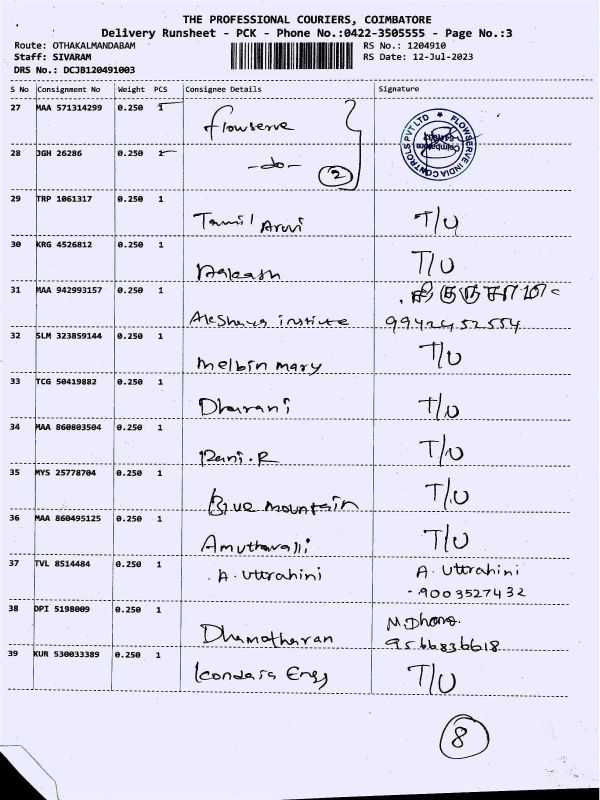 THE PROFESSIONAL COURIERS, COIMBATORE
Delivery Runsheet - PCK - Phone No.:0422-3505555 - Page No.:3
Route: OTHAKALMANDABAM RS No.: 1204910
Staff: SIVARAM RS Date: 12-Jul-2023
DRS No.: DCJB120491003
S No Consignment No Weight PCS Consignee Details Signature
27 MAA 571314299 0.250 1
Flowserve
FLOWSERVE INDIA CONTROLS PVT LTD
Coimbatore
28 JGH 26286 0.250 1
-do-
2
29 TRP 1061317 0.250 1
Tamil Aruvi T/U
30 KRG 4526812 0.250 1
Aakash T/U
31 MAA 942993157 0.250 1
Akshaya institute 9942452554
32 SLM 323859144 0.250 1
melbin mary T/U
33 TCG 50419882 0.250 1
Dharani T/U
34 MAA 860803504 0.250 1
Rani.R T/U
35 MYS 25778704 0.250 1
Blue mountain T/U
36 MAA 860495125 0.250 1
Amuthavalli T/U
37 TVL 8514484 0.250 1
A. Uttrahini A. Uttrahini
- 9003527432
38 DPI 5198009 0.250 1
M. Dhana.
Dhamotharan 9566836618
39 KUR 530033389 0.250 1
Engg T/U
8